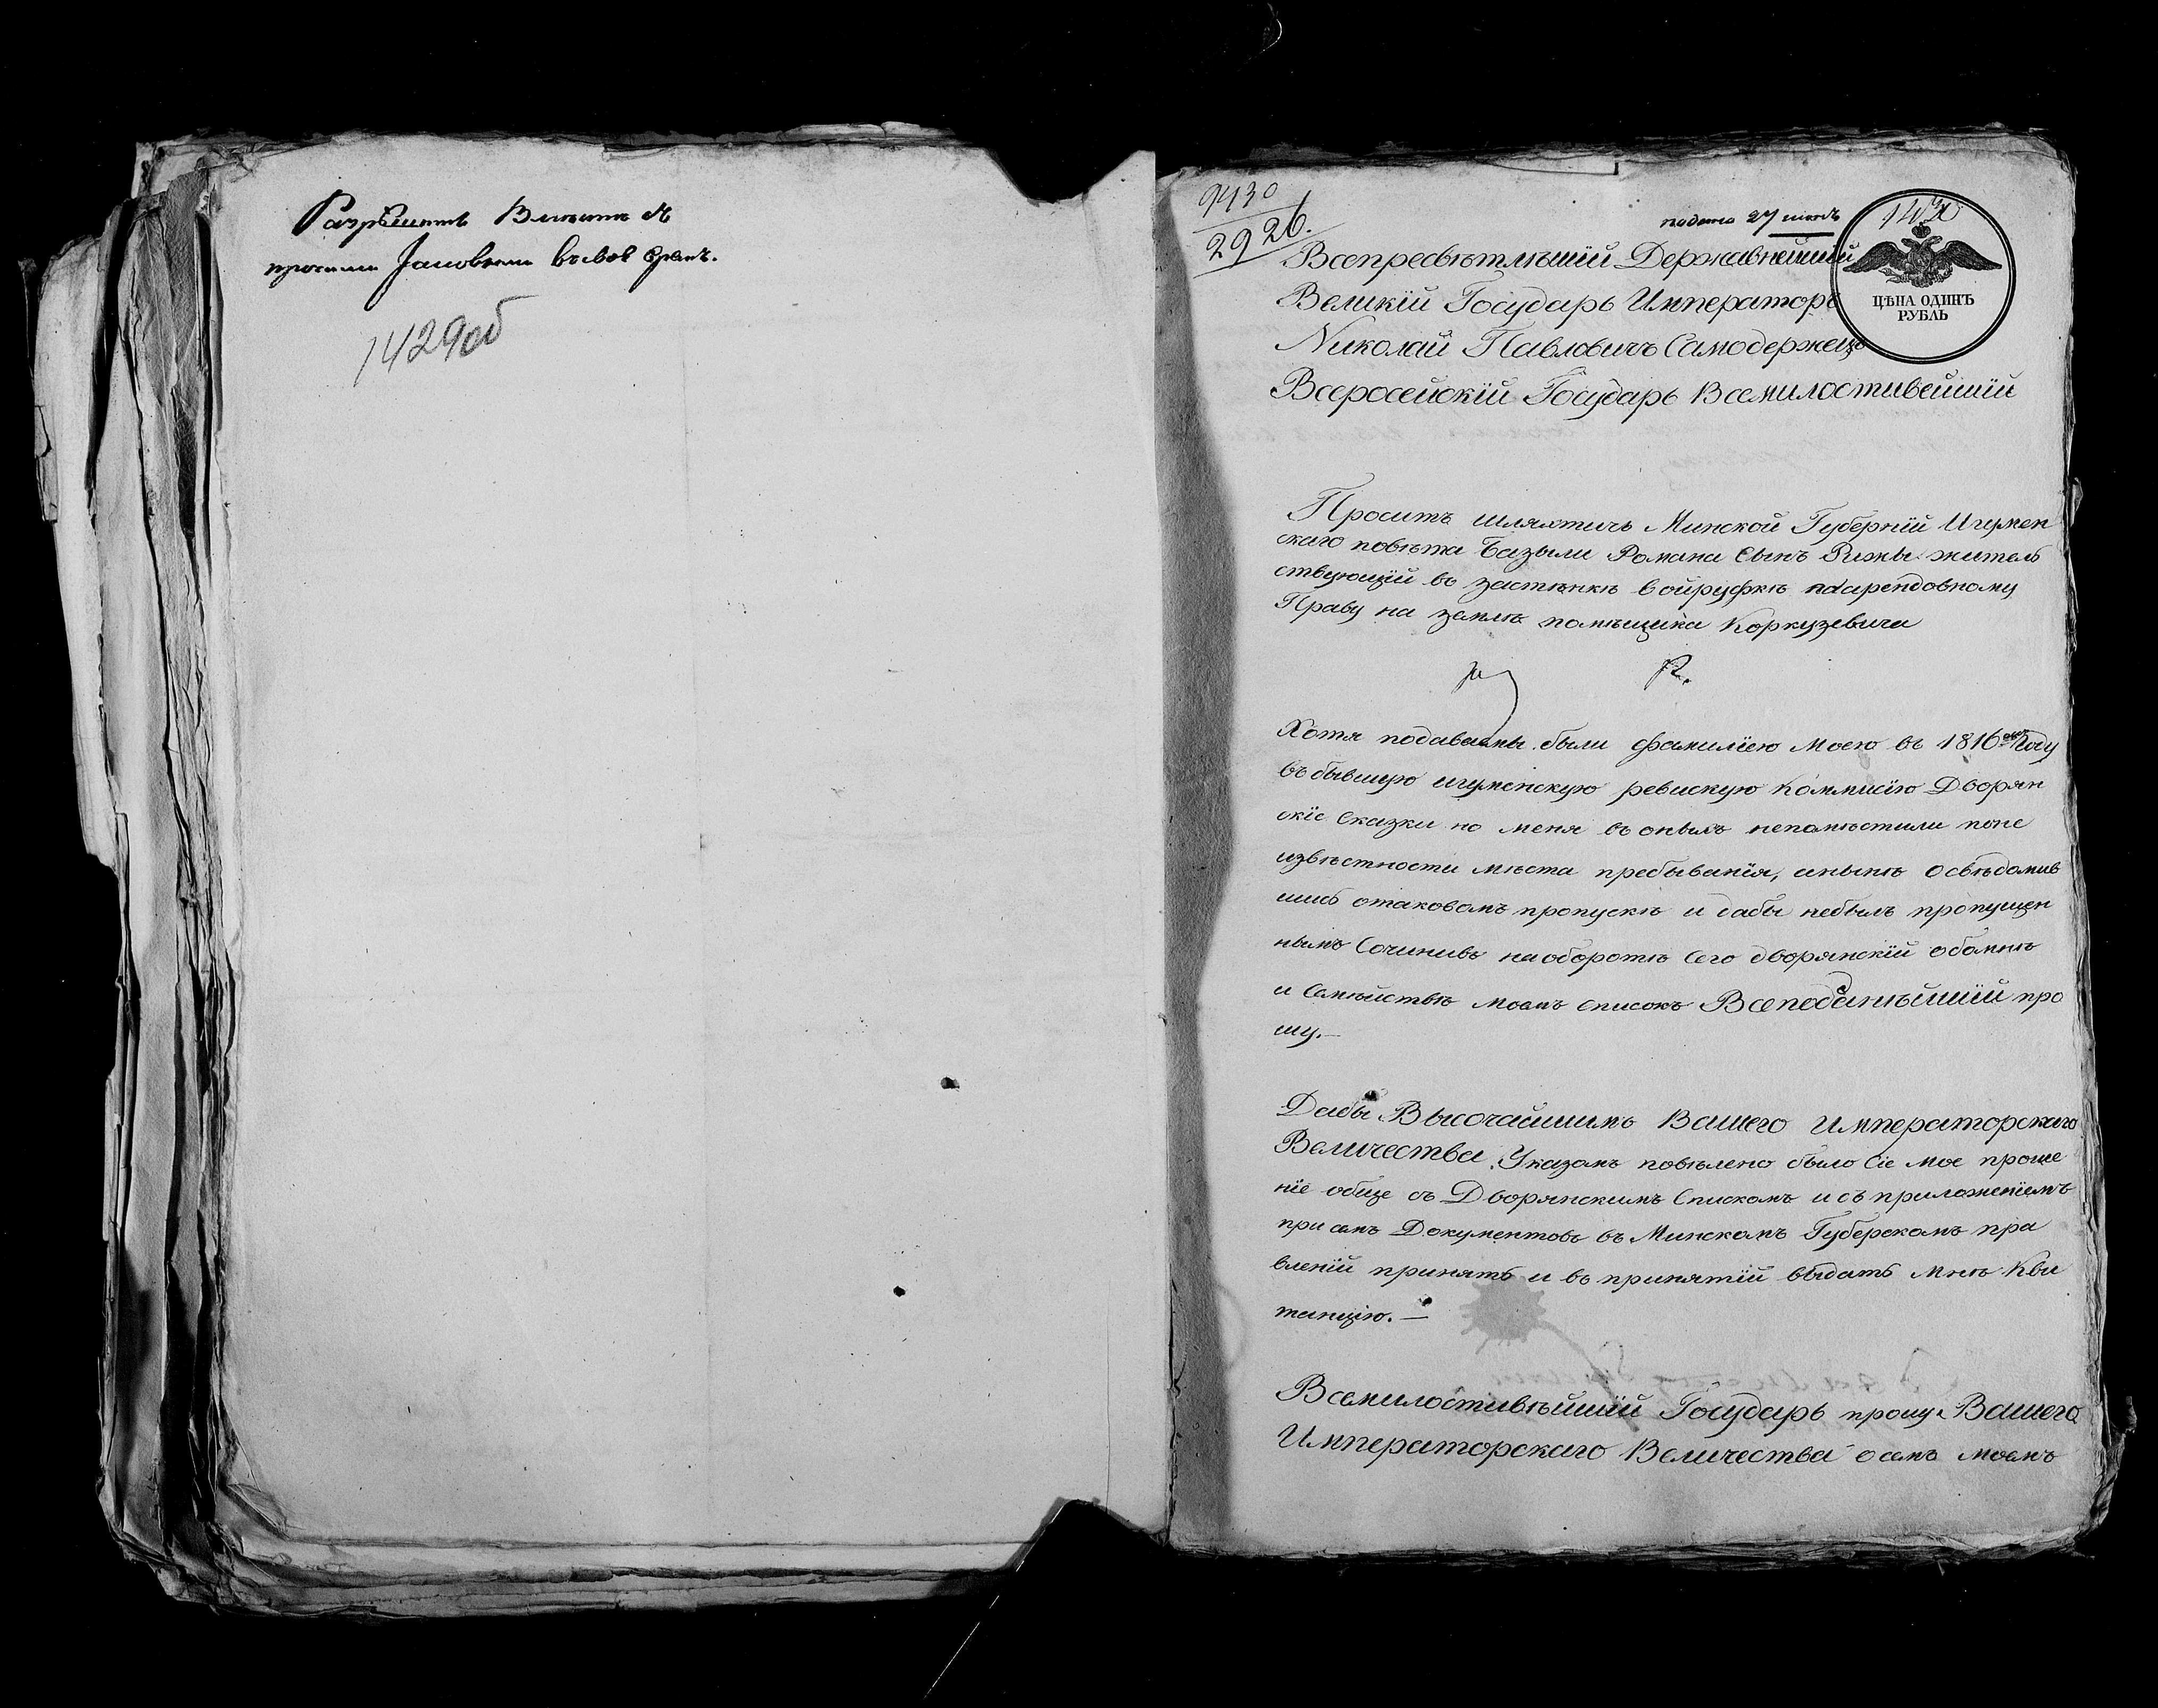 Разрѣшить
просили въ свое время.
1429об
9430
2926.
подано 27 июнь
1430
ЦѢНА ОДИНЪ
РУБЛЬ
Всепресвѣтлѣшій Державнейшій
Великій Государь Императоръ
Николай Павловичъ Самодержецъ
Всеросейскій Государь Всемилостивейшій
Просить шляхтичь Минской Губерніи Игумен
скаго повѣта Базыли Романа Сынъ Рижы житель
ствующій въ застѣнкѣ Войруфкѣ поарендовному
Праву на землѣ помѣщика Коркузевича
Хотя подаваемы были фамиліею моею въ 1816 году
въ бывшую игуменскую ревискую Коммисію Дворян
скіе Сказки но меня въ оныхъ непомѣстили попе
извѣстности мѣста пребыванія, анынѣ освѣдомив
шись отаковомъ пропускѣ и дабы небылъ пропущен
нымъ Сочинивъ наоборотѣ Сего дворянскій обомнѣ
и Самѣйствѣ моемъ списокъ Всеподанѣйшій про
шу.—
Дабы Высочайшимъ Вашего Императорскаго
Величества Указомъ повѣлено было Сіе мое проше
ніе обще съ Дворянскимъ Спискомъ и съ приложеніемъ
при семъ Документовъ въ Минскомъ Губерскомъ пра
вленіи принять и въ принятіи выдать мнѣ Кви
танцію.—
Всемилостивѣйшій Государь прошу Вашего
Императорскаго Величества о семъ моемъ